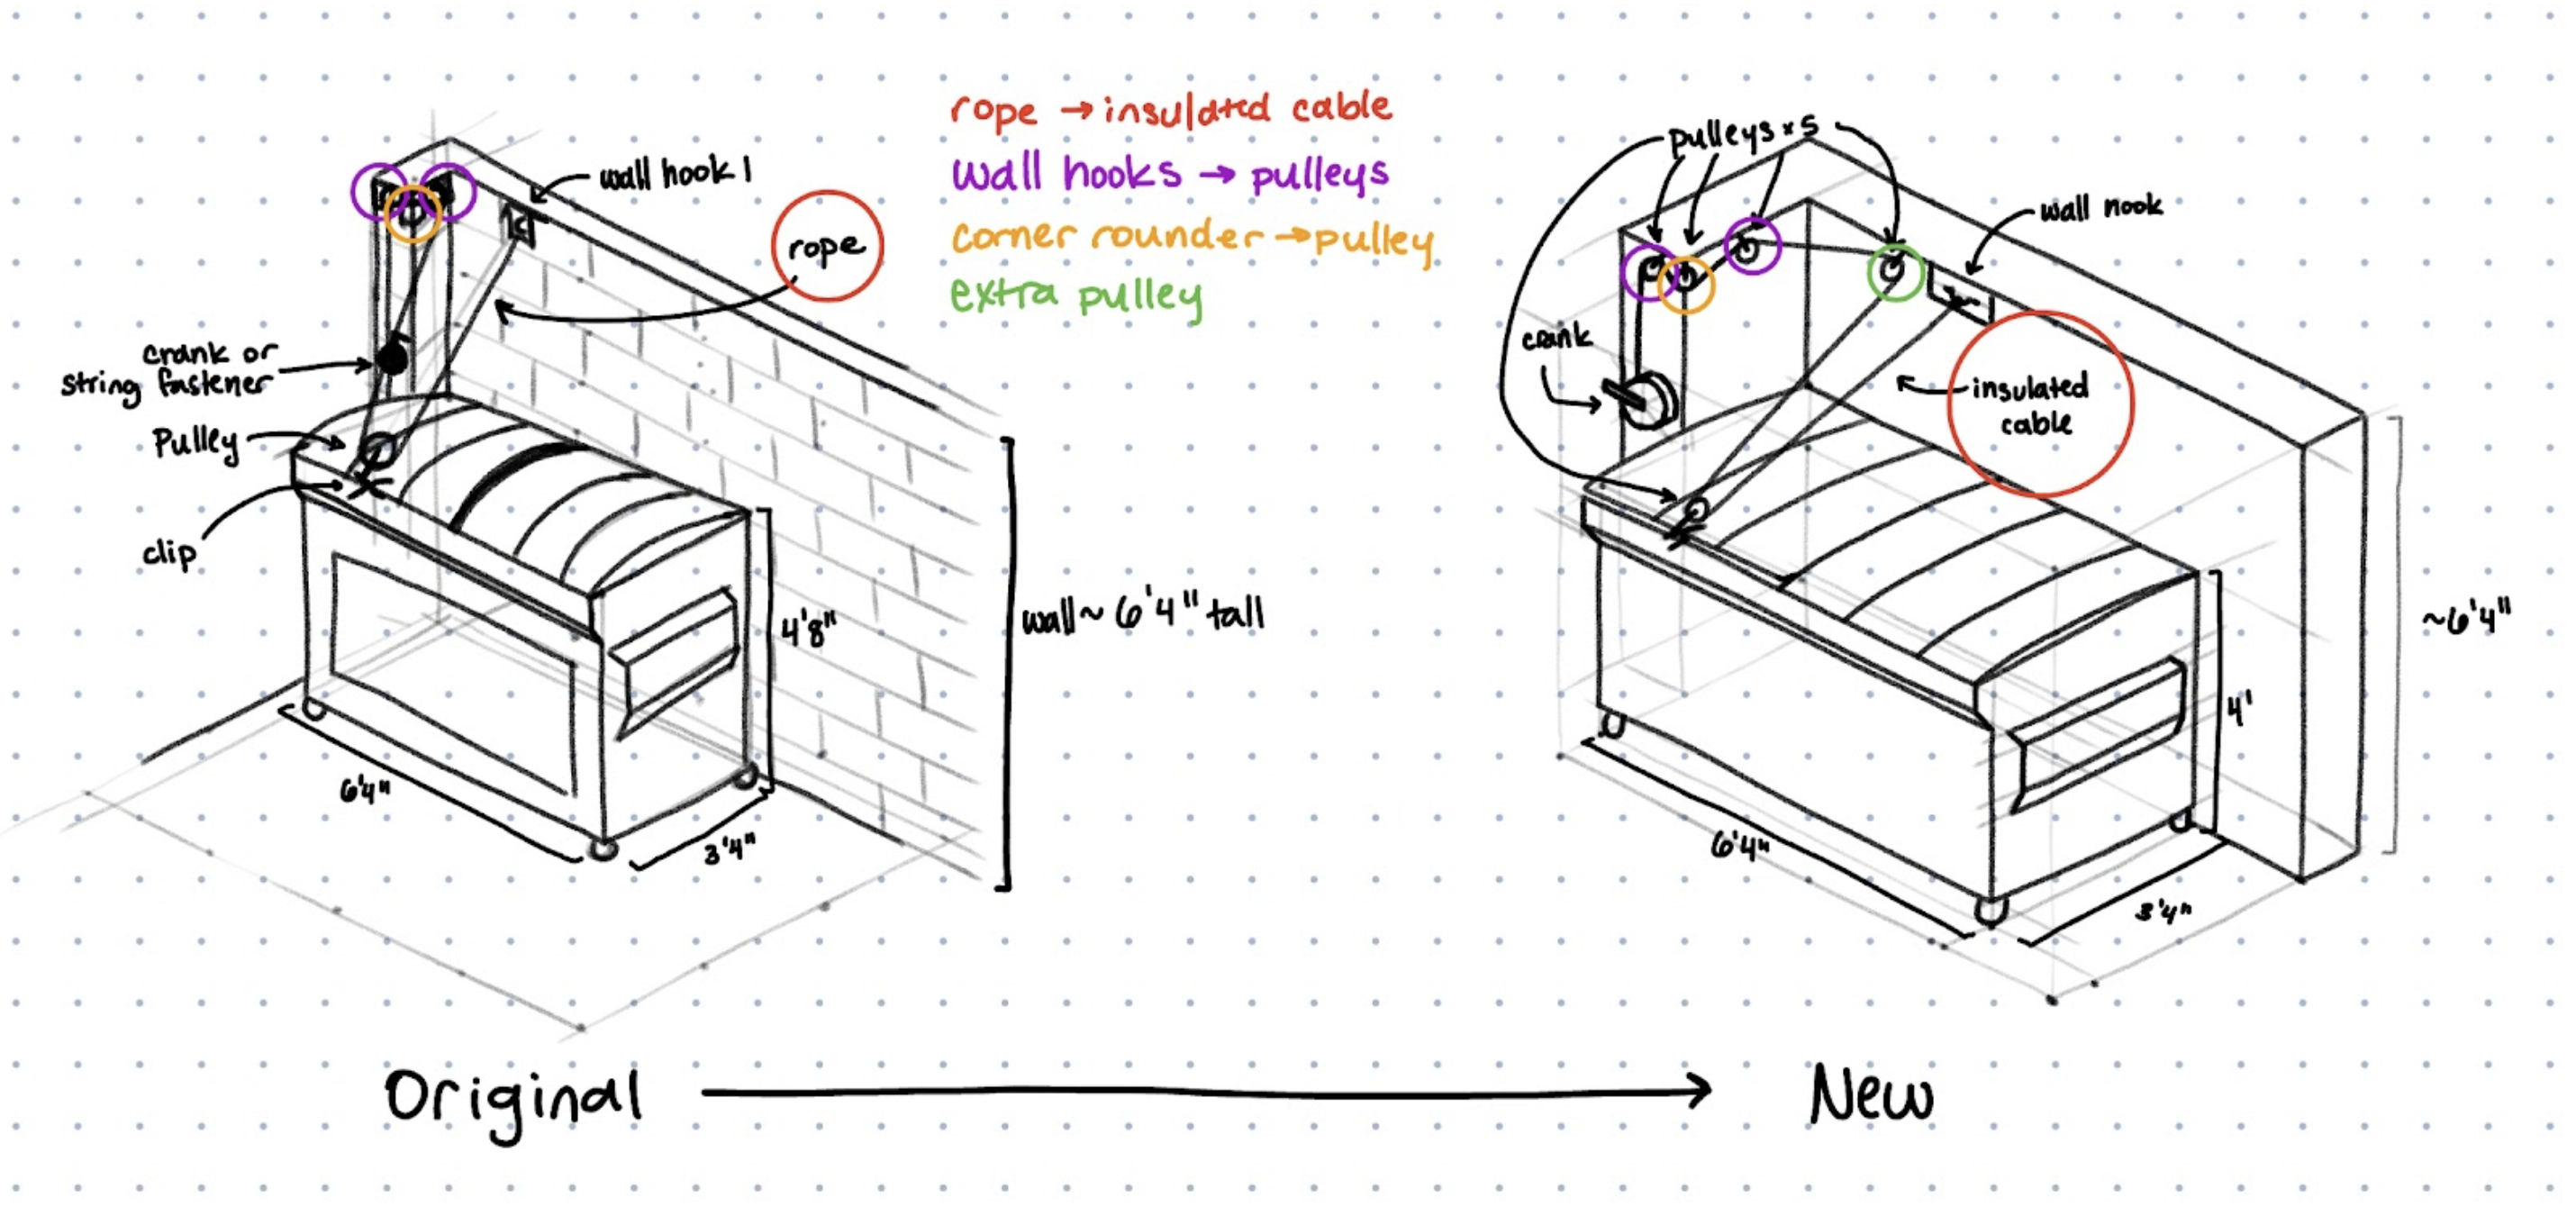 rope → insulated cable
wall hooks → pulleys
corner rounder → pulley
extra pulley
wall hook 1
rope
crank or
string fastener
Pulley
clip
4'8"
wall ~ 6'4" tall
6'4"
3'4"
Original
pulleys x 5
wall hook
crank
insulated
cable
~6'4"
4'
6'4"
3'4"
New